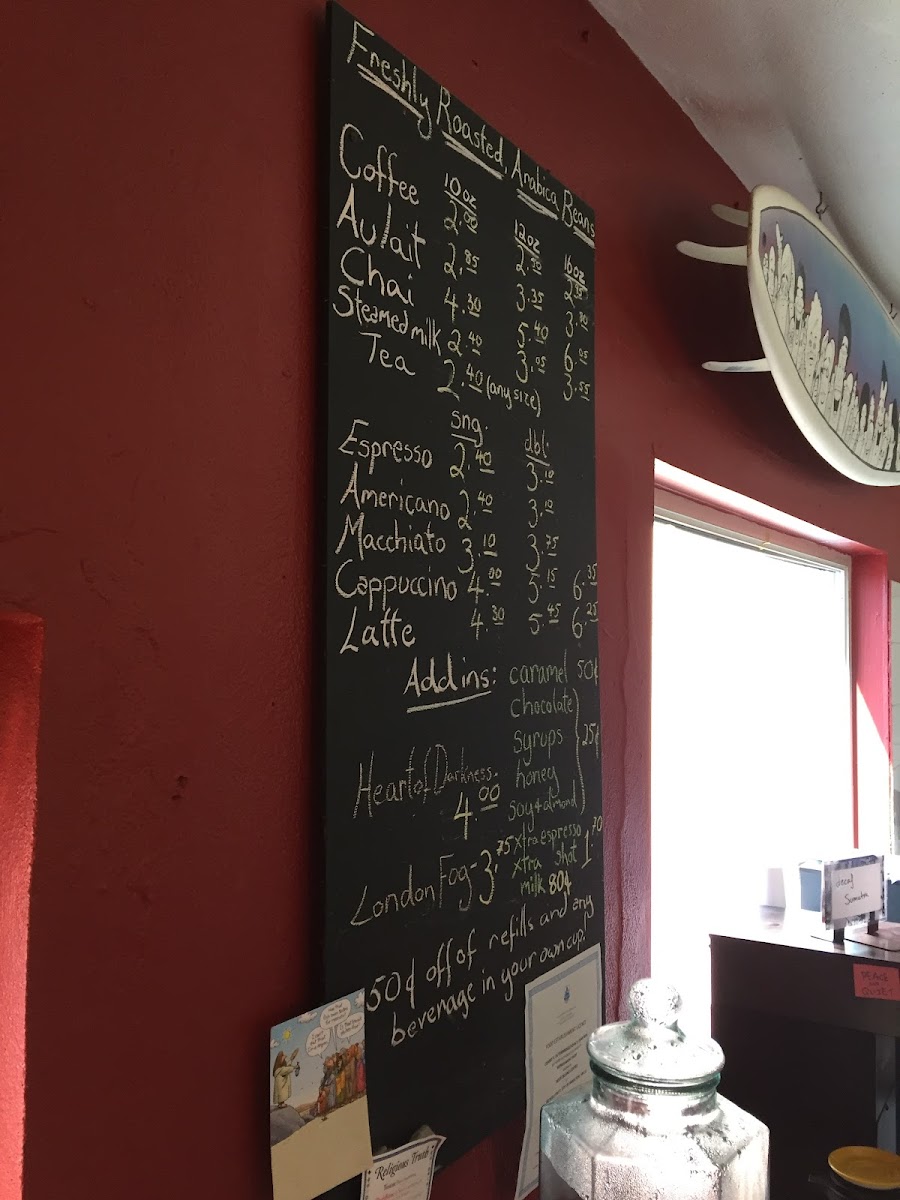 Freshly Roasted, Arabica Beans
10oz 12oz 16oz
Coffee 2.00 2.50 2.95
Au lait 2.85 3.35 3.90
Chai 4.30 5.40 6.05
Steamed milk 2.40 3.05 3.55
Tea 2.40 (any size)
sng. dbl.
Espresso 2.40 3.10
Americano 2.40 3.10
Macchiato 3.10 3.75
Cappuccino 4.00 5.15 6.35
Latte 4.30 5.45 6.25
Add ins: caramel 50¢
chocolate
syrups 25¢
honey
soy & almond
Heart of Darkness.
4.00
xtra espresso shot 1.70
xtra milk 80¢
London Fog - 3.75
50¢ off of refills and any
beverage in your own cup!
Religious Truth
decaf
Sumatra
PEACE
QUIET